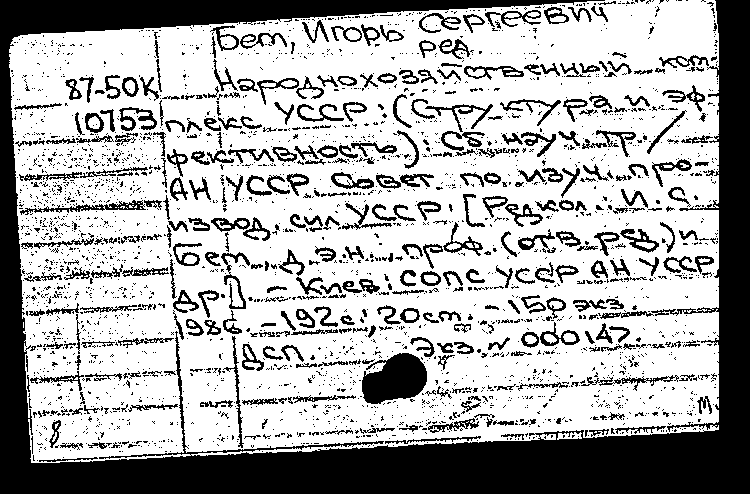 Бет, Игорь Сергеевич
ред.
87-50К
10753
Народнохозяйственный ком-
плекс УССР : (Структура и эф-
фективность) : Сб. науч. тр. /
АН УССР. Совет по изуч. про-
извод. сил УССР; [Редкол.: И. С.
Бет, д. э. н., проф. (отв. ред.) и
др.]. - Киев : СОПС УССР АН УССР,
1986. - 192 с.; 20 см. - 150 экз.
ДСП. Экз. № 000147.
8
М.